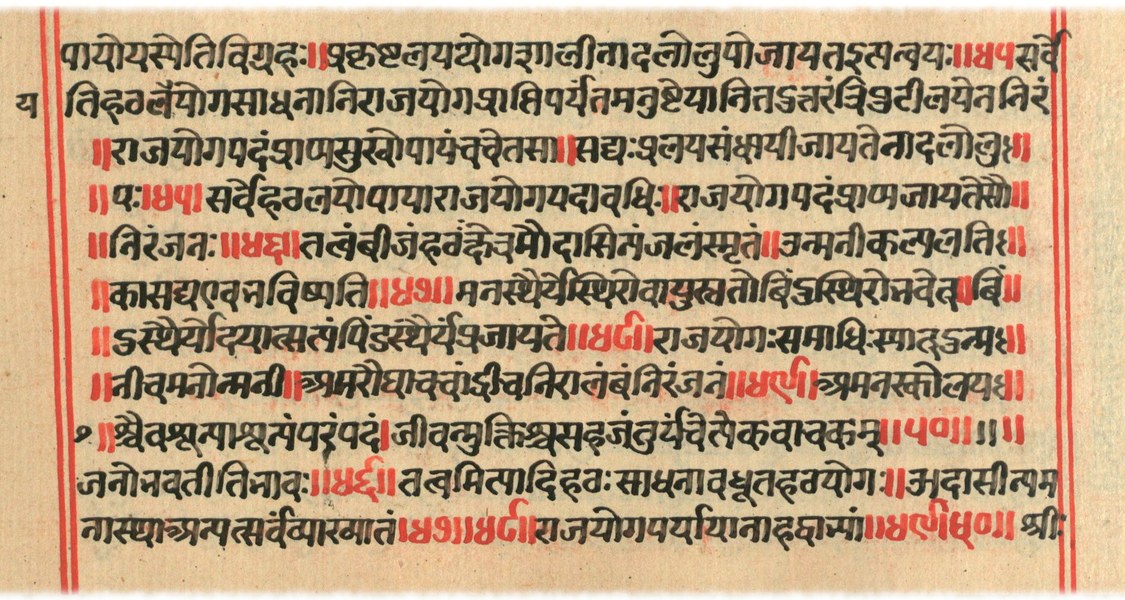 पायोयस्येतिविग्रहः॥प्रकृष्टलययोगशालीनादलोलुपोजायतइत्यन्वयः॥४५सर्वे
य तिहठलैयोगसाधनानिराजयोगप्राप्तिपर्यंतमनुष्टेयानितउत्तरंत्रिपुटीलयेननिरं
॥राजयोगपदंप्राप्यसुखोपायंचचेतसा॥सद्यःप्रलयसंधायीजायतेनादलोलुः॥
॥पः॥४५॥सर्वेहठलयोपायाराजयोगपदावधिः॥राजयोगपदंप्राप्यजायतेसौ॥
॥निरंजनः॥४६॥तत्वंबीजंहठंक्षेत्रमौदासिन्यंजलंस्मृतं॥उन्मनीकल्पलतिः॥
॥कासद्यएवभविष्यति॥४७॥मनस्थैर्येस्थिरोवायुस्वतोबिंदुस्थिरोभवेत्॥बिं॥
॥दुस्थैर्योदयात्सत्यंपिंडस्थैर्यंप्रजायते॥४८॥राजयोगःसमाधिःस्यात्उन्मः॥
॥नीचमनोन्मनी॥अमरौघाक्त्वांद्वीचनिरालंबंनिरंजनं॥४९॥अमनस्कोलयः॥
॥श्चैवशून्याशून्यंपरंपदं।जीवन्मुक्तिश्चसहजंतुर्यंचेत्येकवाचकम्॥५०॥॥॥
जनोभवतीतिभावः॥४६॥तत्वमित्यादिहठःसाधनावधूतहठयोगः॥अदासीन्यम
नास्थाअन्यत्सर्वंव्याख्यातं।४७॥४८॥राजयोगपर्यायानाहद्वाभ्यां॥४९॥५०॥श्रीः